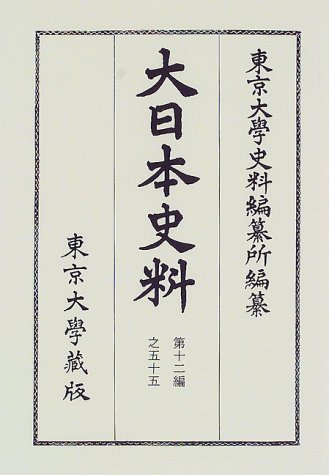 東京大學史料編纂所編纂
大日本史料
第十二編
之五十五
東京大學藏版